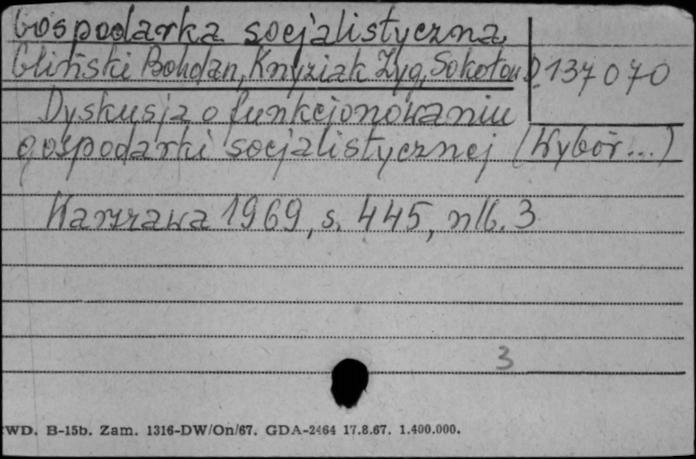 Gospodarka socjalistyczna
Gliński Bohdan, Knyziak Zyg, Sokołow
D 137070
Dyskusja o funkcjonowaniu
gospodarki socjalistycznej (Wybór...)
Warszawa 1969, s. 445, nlb. 3
3
WD. B-15b. Zam. 1316-DW/On/67. GDA-2464 17.8.67. 1.400.000.